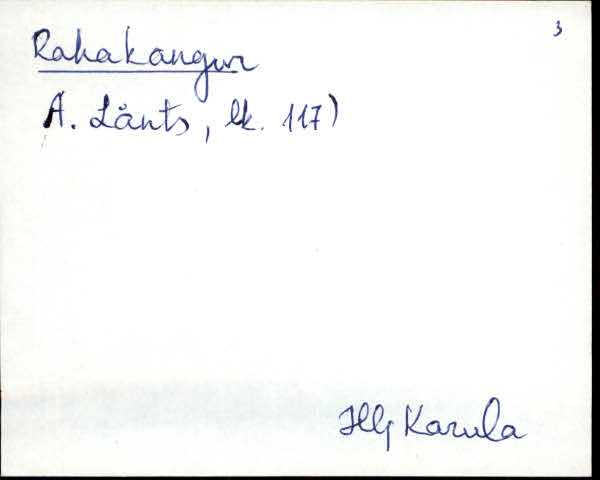 3
Rahakangur
A. Länts, lk. 117)
Hlj Karula